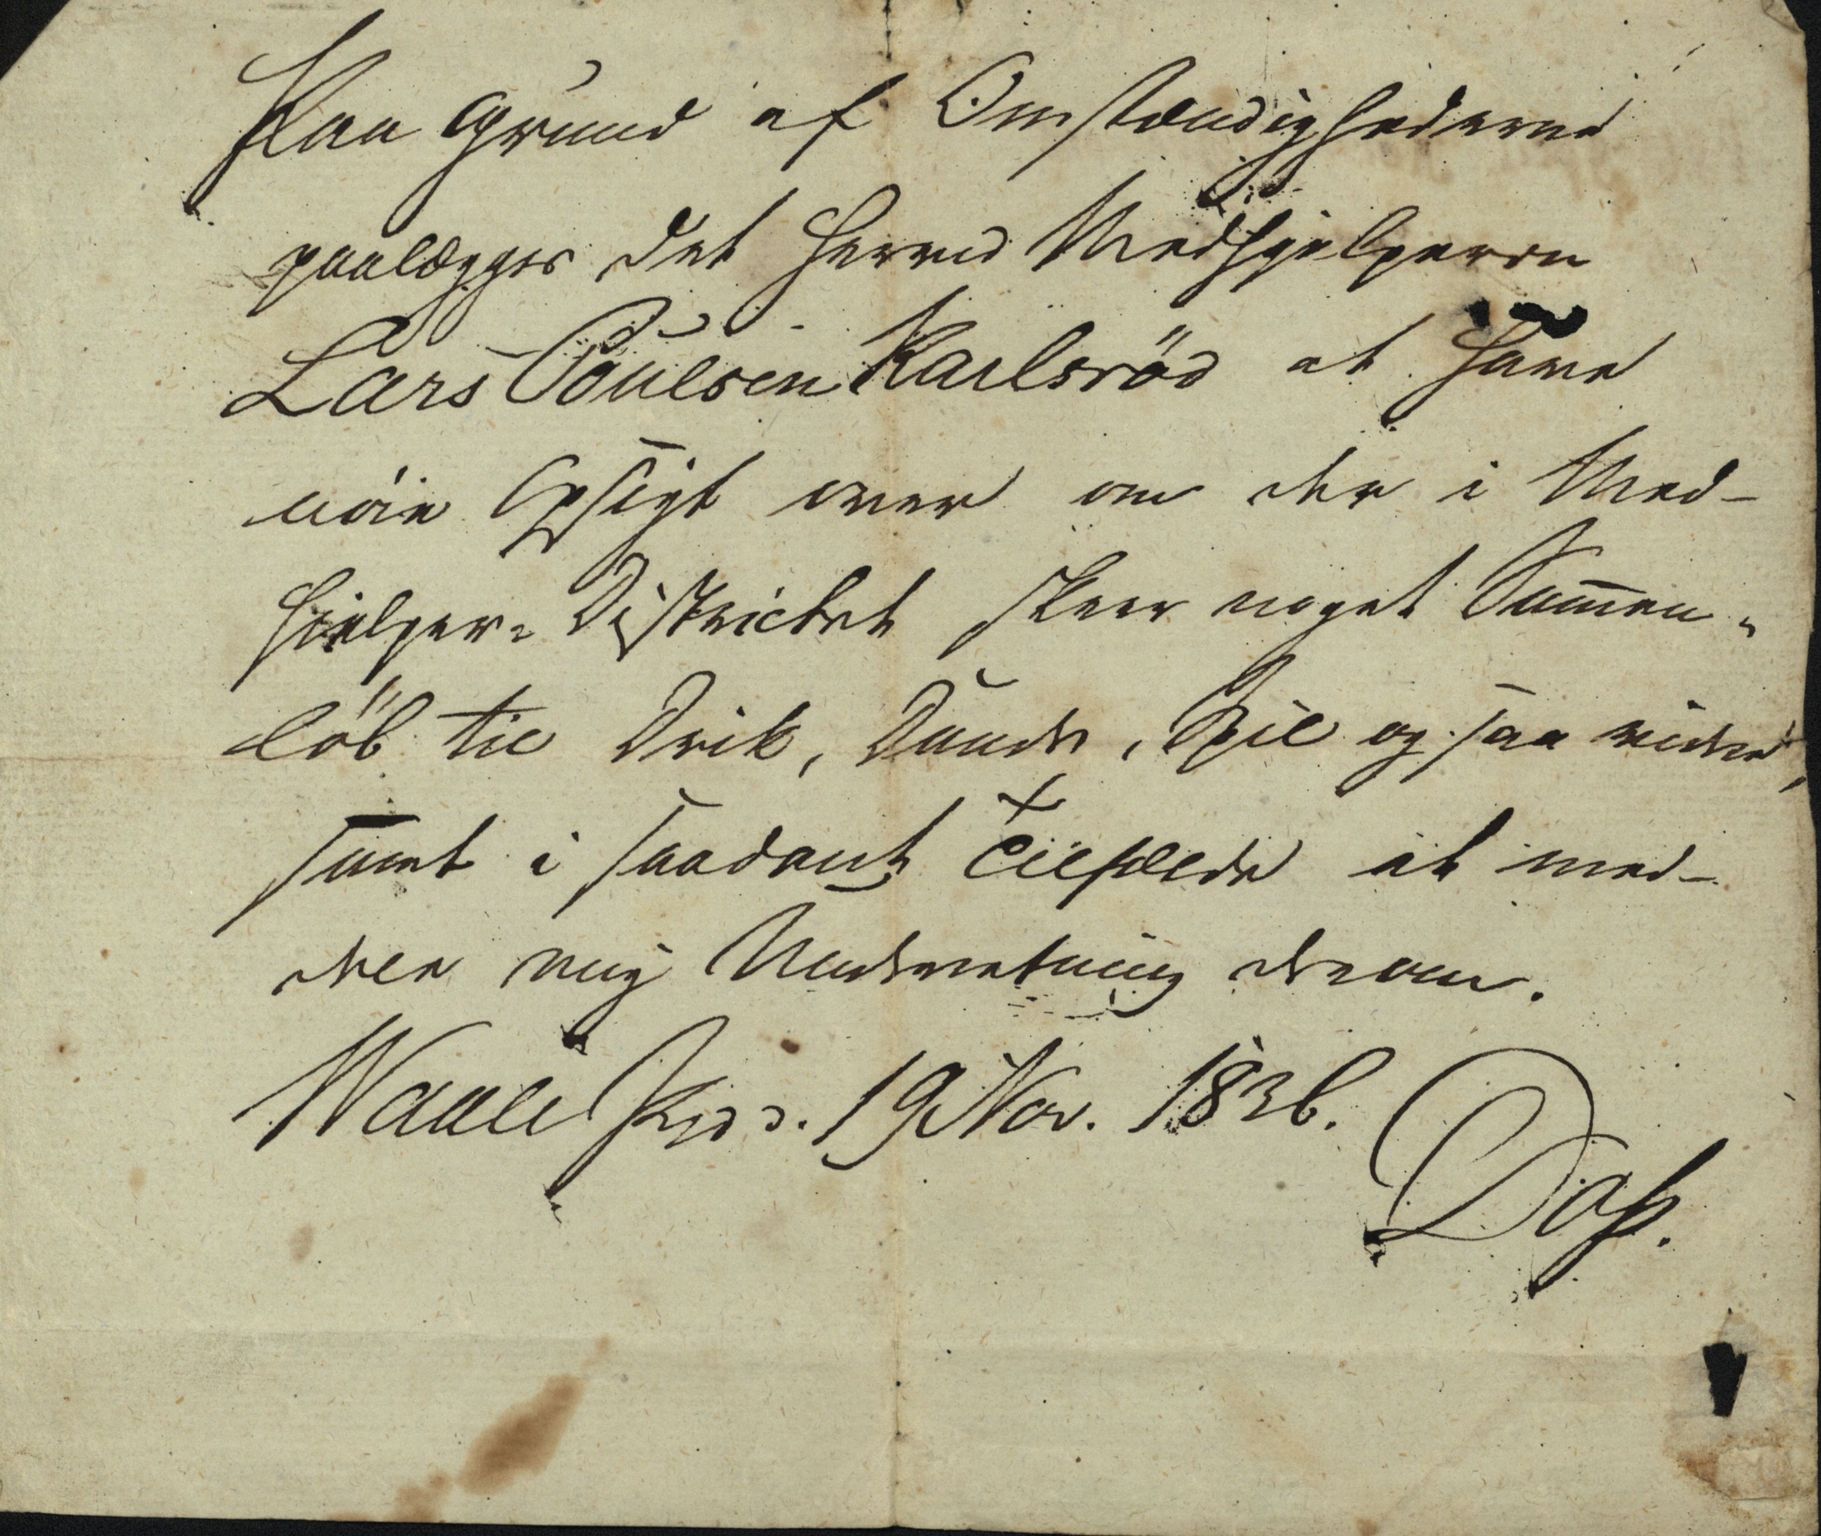 Paa Grund af Omstændighederne
paalægges det herved Medhjelperen
Lars Poulsen Karlsröd at have
nöie Opsigt over om der i Med-
hjelper-Districtet skeer noget Sammen-
löb til Drik, Dands, Spil og saa videre,
samt i saadant Tilfælde at med-
dele mig Underretning derom.
Waale Prgd. 19 Nov. 1836.
Dop.